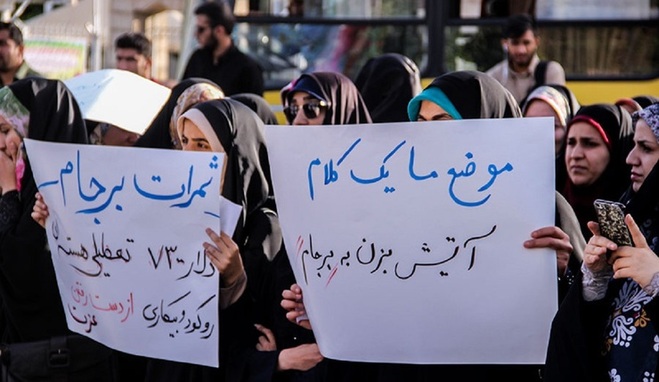 ثمرات برجام
دلار ۷۳۰۰ تعطیلی هسته‌ای
رکود و بیکاری از دست رفتن
عزت
موضع ما یک کلام
آتیش بزن به برجام